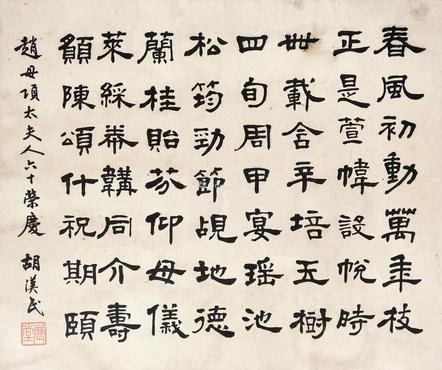 春風初動萬年枝
正是萱幃設帨時
卅載含辛培玉樹
四旬周甲宴瑤池
松筠勁節覘地德
蘭桂貽芬仰母儀
萊綵帣韝同介壽
願陳頌什祝期頤
趙母項太夫人六十榮慶 胡漢民